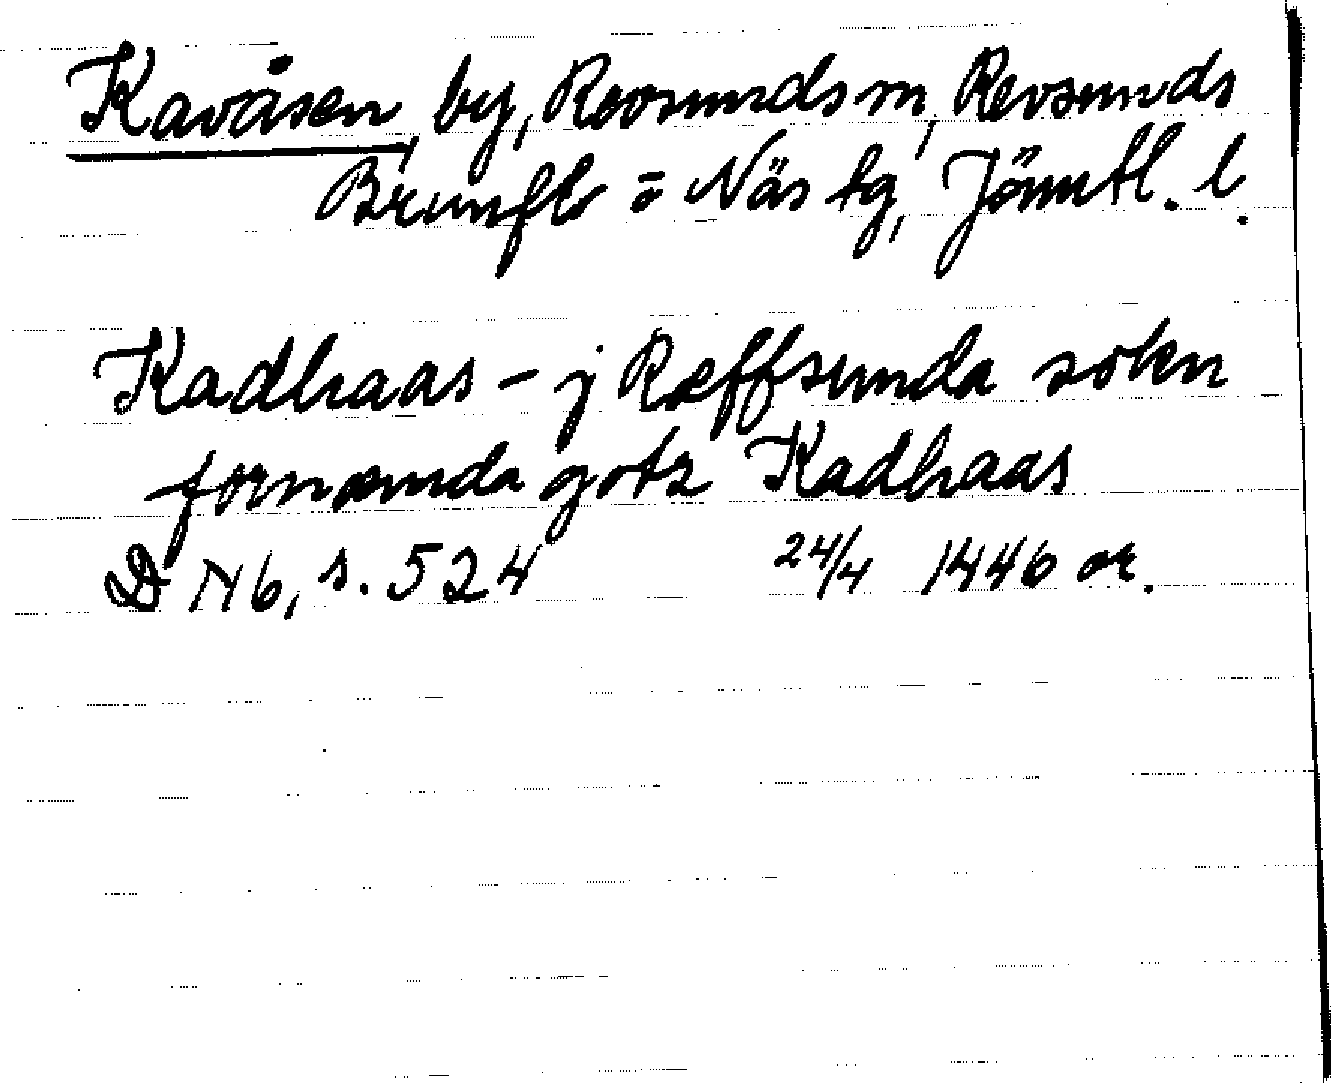 Kavåsen, by, Revsunds sn, Revsunds
Brunflo = Näs tg, Jämtl. l.
Kadhaas - j Ræffsunda sokn
fornæmda gotz Kadhaas
DN 16, s. 524 24/4 1446 or.